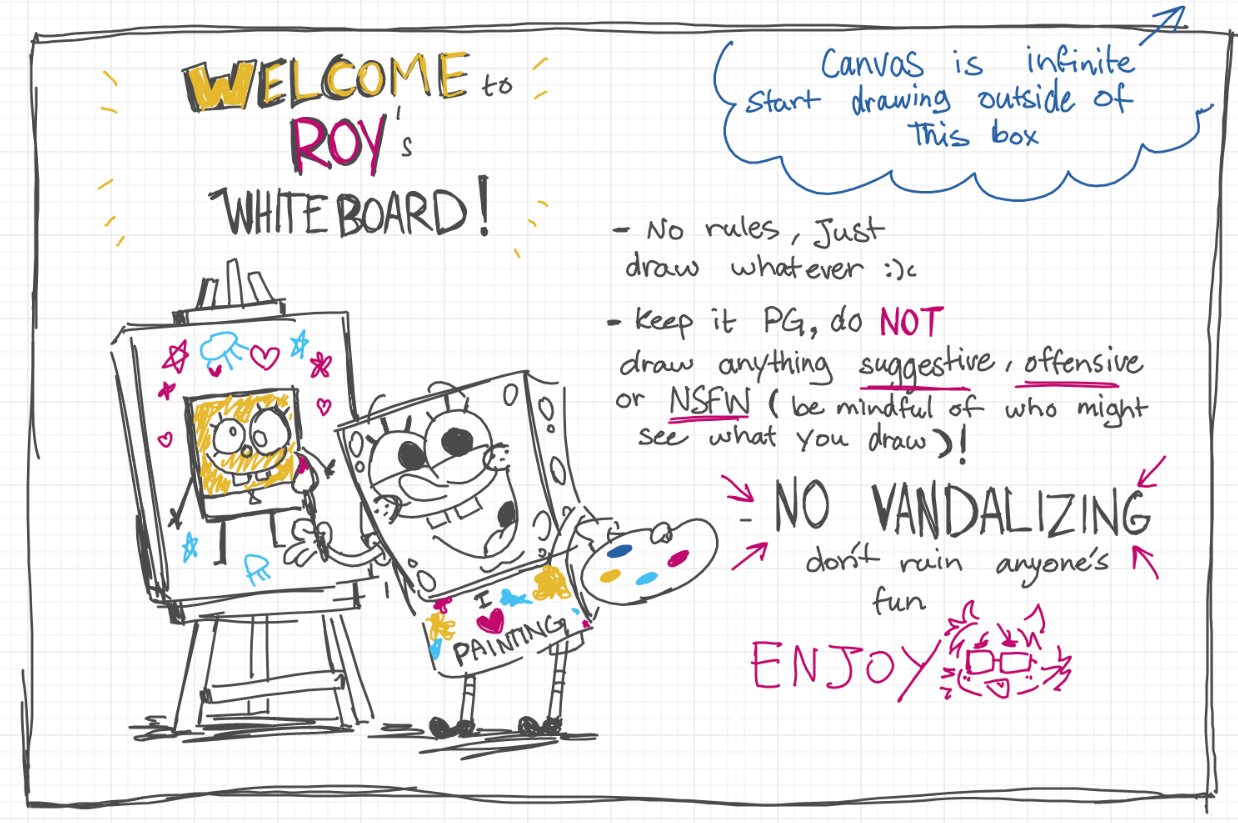 WELCOME to
ROY's
WHITEBOARD!
Canvas is infinite
start drawing outside of
This box
- No rules, Just
draw whatever :)c
- Keep it PG, do NOT
draw anything suggestive, offensive
or NSFW (be mindful of who might
see what you draw)!
- NO VANDALIZING
don't ruin anyone's
fun
ENJOY
I ♥
PAINTING